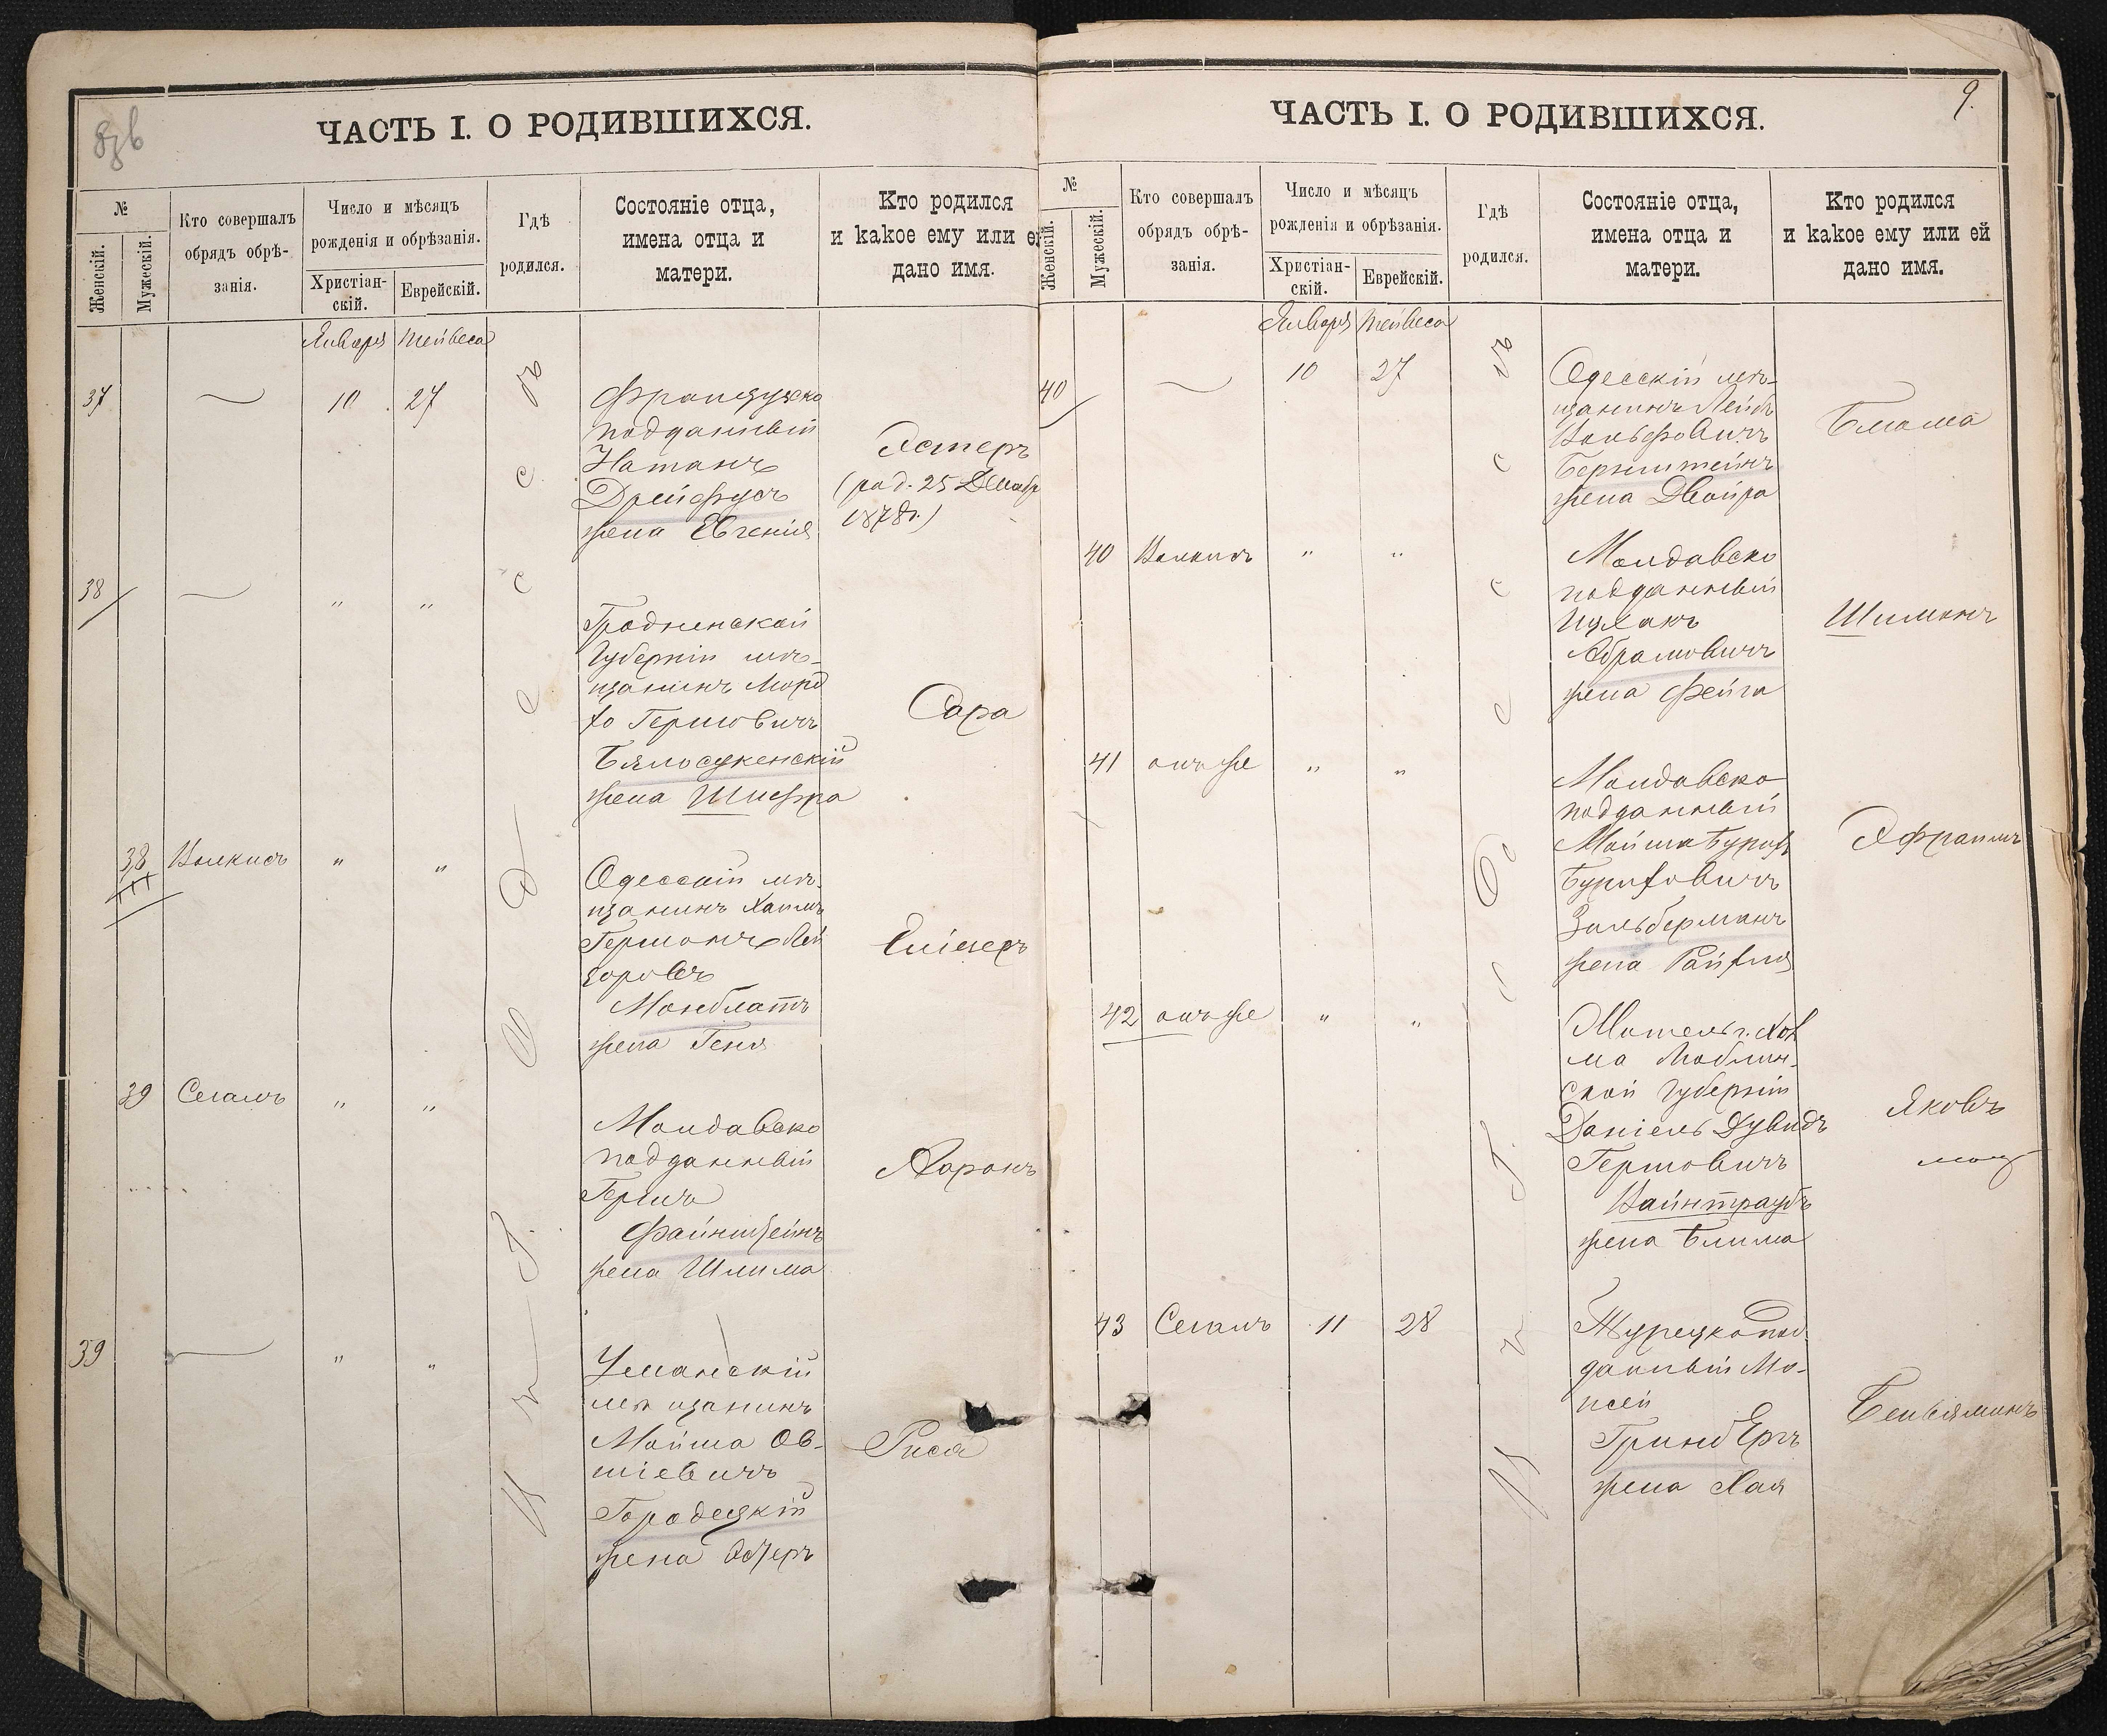 8зв
ЧАСТЬ I. О РОДИВШИХСЯ.
№
Женскій.
Мужескій.
Кто совершалъ
обрядъ обрѣ-
занія.
Число и мѣсяцъ
рожденія и обрѣзанія.
Христіан-
скій.
Еврейскій.
Гдѣ
родился.
Состояніе отца,
имена отца и
матери.
Кто родился
и какое ему или ей
дано имя.
Января Тейвеса
37 10 27
Французско
подданный
Натанъ
Дрейфусъ
жена Евгенія
Эстеръ
(род. 25 Декабр
1878г.)
38 " "
Гродненской
Губерніи мѣ-
щанинъ Морд
хо Гершовичъ
Бялосукенскій
жена Шифра
Сара
38 Валкисъ " "
Одесскій мѣ-
щанинъ Хаимъ
Гершонъ Лей
зоровъ
Монблатъ
жена Геня
Еліезеръ
39 Сегалъ " "
Молдавско
подданный
Гершъ
Файнштейнъ
жена Шлима
Ааронъ
39 " "
Уманскій
мѣщанинъ
Мойша Ов-
шіевичъ
Городецкій
жена Эстеръ
Рися
въ Одессѣ
9.
ЧАСТЬ I. О РОДИВШИХСЯ.
№
Женскій.
Мужескій.
Кто совершалъ
обрядъ обрѣ-
занія.
Число и мѣсяцъ
рожденія и обрѣзанія.
Христіан-
скій.
Еврейскій.
Гдѣ
родился.
Состояніе отца,
имена отца и
матери.
Кто родился
и какое ему или ей
дано имя.
Января Тейвеса
40 10 27
Одесскій мѣ-
щанинъ Лейб
Вольфовичъ
Бернштейнъ
жена Двойра
Блюма
40 Валкисъ " "
Молдавско
подданный
Ицхакъ
Абрамовичъ
жена Фейга
Шимонъ
41 онъ же " "
Молдавско
подданный
Мойша Бурих
Буриховичъ
Зильберманъ
жена Райхля
Эфраимъ
42 онъ же " "
Житель г. Хол
ма Люблин-
ской Губерніи
Даніель Дувидъ
Гершовичъ
Вайнтраубъ
жена Блима
Яковъ
43 Сегалъ 11 28
Турецкопод
данный Мо-
исей
Гринбергъ
жена Хая
Беньяминъ
въ Одессѣ